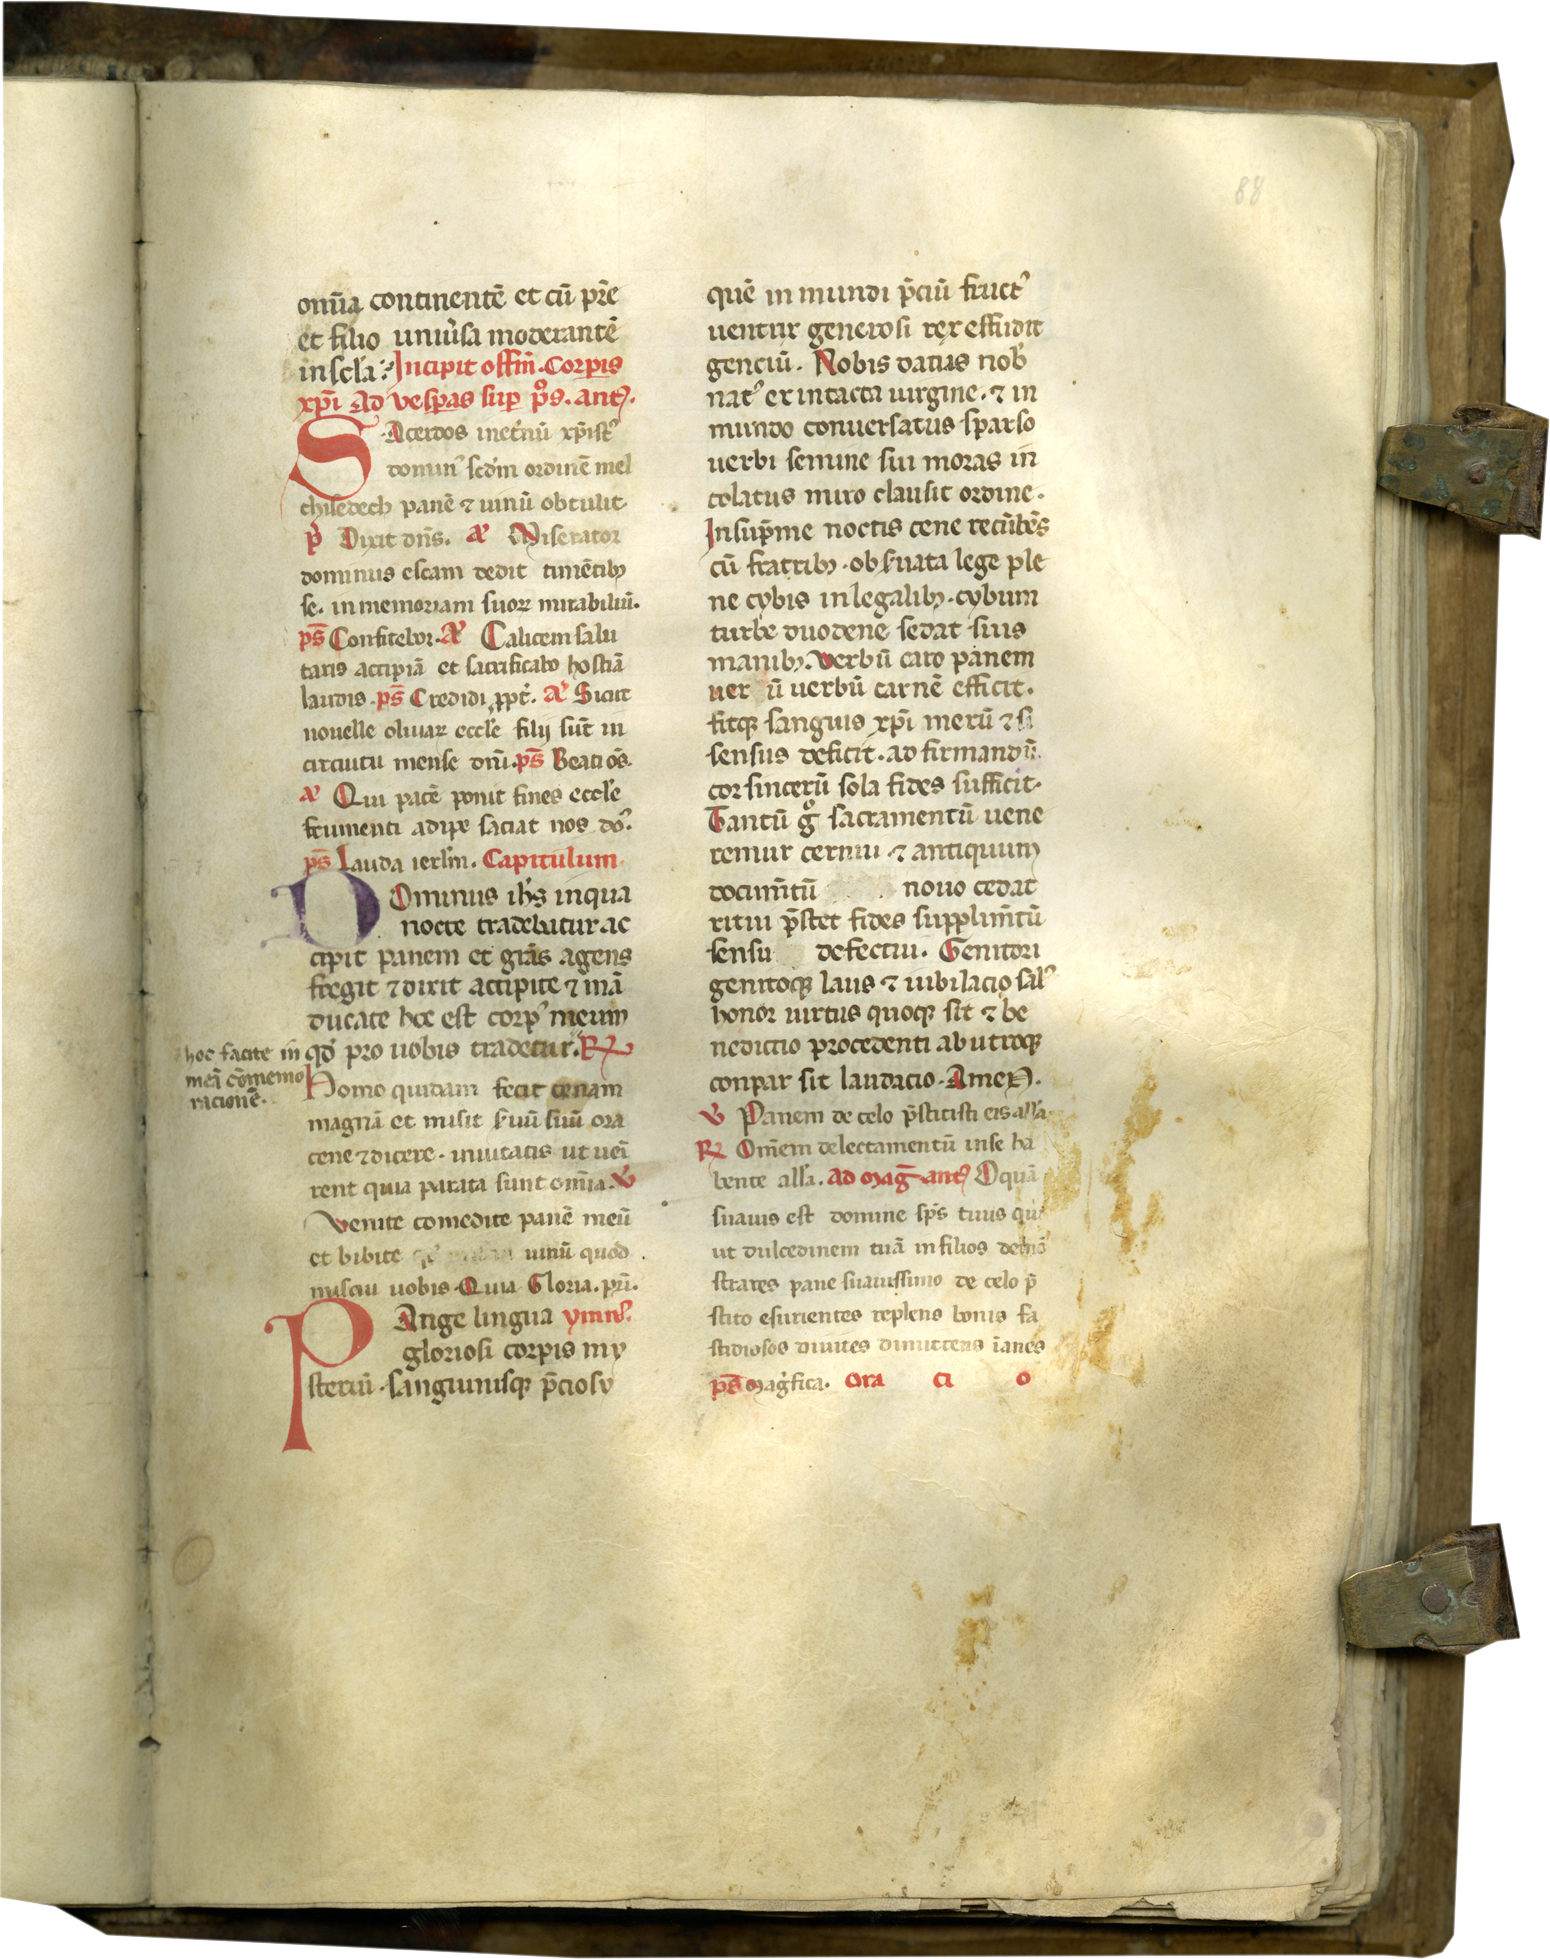 88
om̄ia continentē et cū pr̄e
et filio uniu̾sa moderantē
in scl̄a. Incipit offm̄. Corpis
xp̄i Ad vesp̲as sup̲ ps̄. ant̾.
SAcerdos inet̾nū xp̄istꝰ
dominꝰ scd̄m ordinē mel
chisedech panē ⁊ uinū obtulit.
p̄s Dixit dn̄s. a᷎ Miserator
dominus escam dedit timētibꝫ
se. in memoriam suoꝝ mirabiliū.
ps̄ Confitebor. a᷎ Calicem salu
taris accipiā et sacrificabo hostiā
laudis. ps̄ Credidi ꝓpt̾. a᷎ Sicut
nouelle oliuaꝝ eccl̄e filij sūt in
circuitu mense dn̄i. ps̄ Beati oēs.
a᷎ Qui pacē ponit fines eccl̄e
frumenti adipe saciat nos doꝰ.
ps̄ Lauda ierl̄m. Capitulum
DOminus ih̄s inqua
nocte tradebitur ac
cipit panem et grās agens
fregit ⁊ dixit accipite ⁊ mā
ducate hoc est corpꝰ meum
qd̾ pro uobis tradetur. ℞
hoc facite in
meā cōmemo
racionē.
Homo quidam fecit cenam
magnā et misit s̾uū suū ora
cene ⁊ dicere. inuitatis ut uēi
rent quia parata sunt om̄ia. ℣
Venite comedite panē meū
et bibite uinū quod
misciu uobis Quia Gloria. pr̄i.
PAnge lingua ymnꝰ.
gloriosi corpis my
steriū. sanguinisqꝫ p̄ciosy
quē in mundi p̄ciū fructꝰ
uentur generosi rex effudit
genciū. Nobis datus nob̾
natꝰ ex intacta uirgine. ⁊ in
mundo conuersatus sparso
uerbi semine sui moras in
colatus miro clausit ordine.
In sup̄me noctis cene recūbēs
cū fratribꝫ. obs̾uata lege ple
ne cybis in legalibꝫ. cybum
turbe duodene sedat suis
manibꝫ. Verbū caro panem
uer ū uerbū carnē efficit.
fitqꝫ sanguis xp̄i merū ⁊ si
sensus deficit. ad firmandū
cor sincerū sola fides sufficit.
Tantū gͦ sacramentū uene
remur cernui ⁊ antiquum
documētū nouo cedat
ritui p̄stet fides supplimētū
sensu defectui. Genitori
genitoqꝫ laus ⁊ iubilacio salꝰ
honor uirtus quoqꝫ sit ⁊ be
nedictio procedenti ab utroqꝫ
conpar sit laudacio. Amen.
℣ Panem de celo p̄stitisti eis all̄a
℞ Om̄em delectamentū in se ha
bente all̄a. Ad maḡ ant̾ O quā
suauis est domine sp̄s tuus qui
ut dulcedinem tuā in filios demō
strares pane suauissimo de celo p̄
stito esurientes replens bonis fa
stidiosos diuites dimittens īanes
ps̄ mag̾fica. Ora ci o